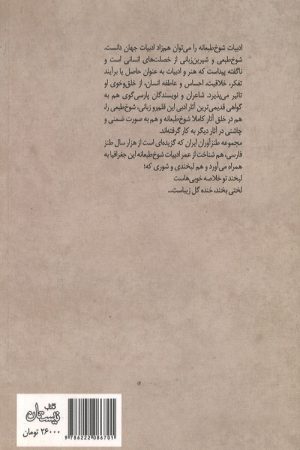 ادبیات شوخ‌طبعانه را می‌توان هم‌زاد ادبیات جهان دانست.
شوخ‌طبعی و شیرین‌زبانی از خصلت‌های انسانی است و
ناگفته پیداست که هنر و ادبیات به عنوان حاصل یا برآیند
تفکر، خلاقیت، احساس و عاطفه انسان، از خلق‌وخوی او
تاثیر می‌پذیرد. شاعران و نویسندگان پارسی‌گوی هم به
گواهی قدیمی‌ترین آثار ادبی این قلمرو زبانی، شوخ‌طبعی را،
هم در خلق آثار کاملا شوخ‌طبعانه و هم به صورت ضمنی و
چاشنی در آثار دیگر به کار گرفته‌اند.
مجموعه طنزآوران ایران که گزیده‌ای است از هزار سال طنز
فارسی، هم شناخت از عمر ادبیات شوخ‌طبعانه این جغرافیا به
همراه می‌آورد و هم لبخندی و شوری که:
لبخند تو خلاصه خوبی‌هاست
لختی بخند، خنده گل زیباست...
کتاب
نیستان
۲۶۰۰۰ تومان
9 786222 086701